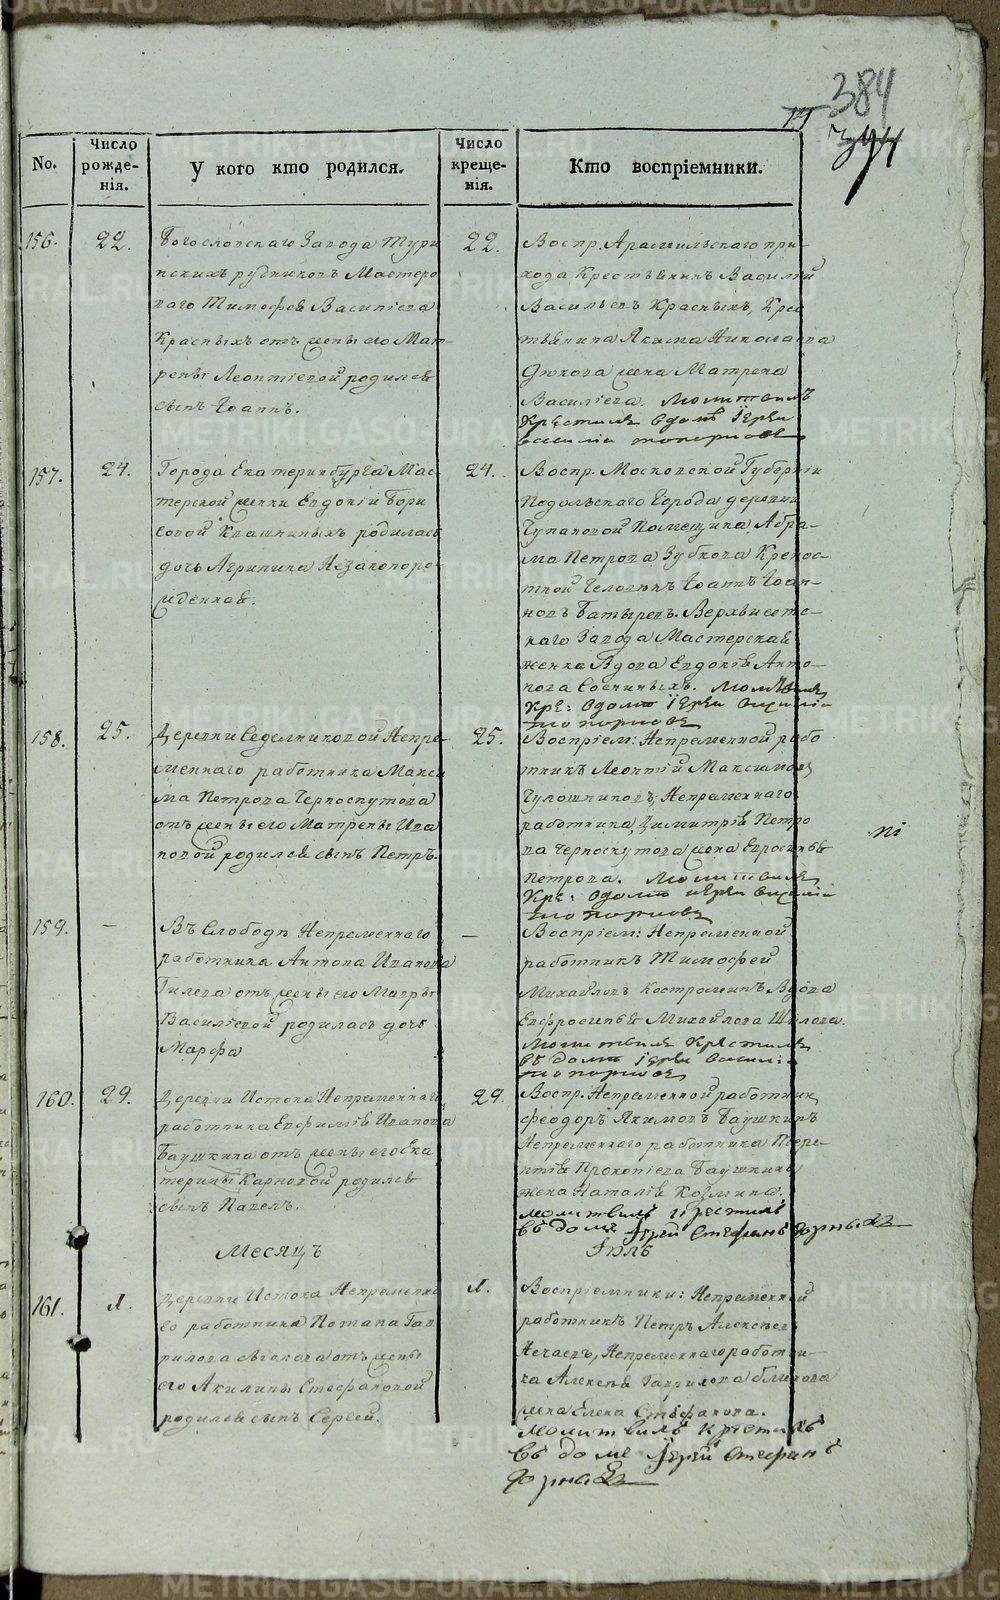 384
394
No.
Число рожде-нія.
У кого кто родился.
Число креще-нія.
Кто воспріемники.
156.
22.
Богословскаго Завода Тури
нскихъ рудниковъ Мастеро
ваго Тимофея Василіева
Красныхъ отъ жены его Мат-
рены Леонтіевой родился
сынъ Іоаннъ.
22.
Воспр. Арамильскаго при-
хода Крестьянинъ Василій
Васильевъ Красныхъ, Крес
тьянина Якима Николаева
жена Матрена
Василіева. Молитвилъ
Крестилъ в доме Іерей
василіи топорковъ
157.
24.
Города Екатеринбурга Мас-
терской женки Евдокіи Бори
совой Квашниныхъ родилась
дочь Агрипина Незаконоро-
жденная.
24.
Воспр. Московской Губерніи
Подольскаго Города деревни
Чупаковой Помещика Абра-
ма Петрова Зубкова Крепос-
тной Человекъ Іоаннъ Іоан-
новъ Батыревъ. Верхъисетс-
каго Завода Мастерская
женка Вдова Евдокія Анто-
нова
Кре: в доме Іерей василіи
топорковъ
158.
25.
Деревни Седелниковой Непре-
меннаго работника Макси
ма Петрова Черноскутова
отъ жены его Матрены Ива
новой родился сынъ Петръ.
25.
Воспріем: Непременной рабо
тникъ Леонтій Максимовъ
Непременнаго
работника Димитрія Петро
ва Черноскутова жена Евросинья
Петрова. Молитвилъ
Кре: в доме иерей василіи
топорковъ
159.
—
Въ Слободе Непременнаго
работника Антона Иванова
Гилева отъ жены его Мавры
Василіевой родилась дочь
Марфа
—
Воспріем: Непременной
работникъ Тимофей
Михайловъ Костроминъ Вдова
Евфросинья Михайлова Шилова.
Молитвилъ Крестилъ
въ доме Іерей василіи
топорковъ
160.
29.
Деревни Истока Непременнаго
работника Евфимія Иванова
Баушкина отъ жены его Ека
терины Карповой родился
сынъ Павелъ.
29.
Воспр. Непременной работник
Феодоръ Якимовъ Баушкинъ
Непременнаго работника Тере-
нтія Прокопіева Баушкина
жена Наталія Козмина.
молитвилъ и крестилъ
въ доме Іерей Стефанъ Форныхъ
Месяцъ
Іюль
161.
1.
Деревни Истока Непременна
го работника Потапа Гав
рилова отъ жены
его Акилины Стефановой
родился сынъ Сергей.
1.
Воспріемники: Непременной
работникъ Петръ Алексеевъ
Нечаевъ, Непременнаго работни-
ка Алексея Гаврилова Блинова
жена Елена Стефанова.
молитвилъ крестилъ
въ доме Іерей Стефанъ
Форныхъ
METRIKI.GASO-URAL.RU